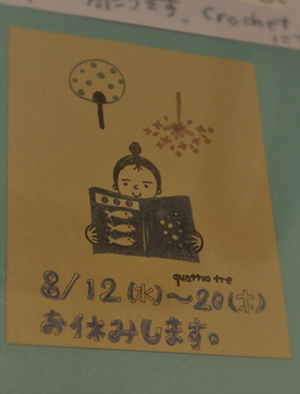 ります。Crochet
quattro tre
8/12(水)~20(木)
お休みします。